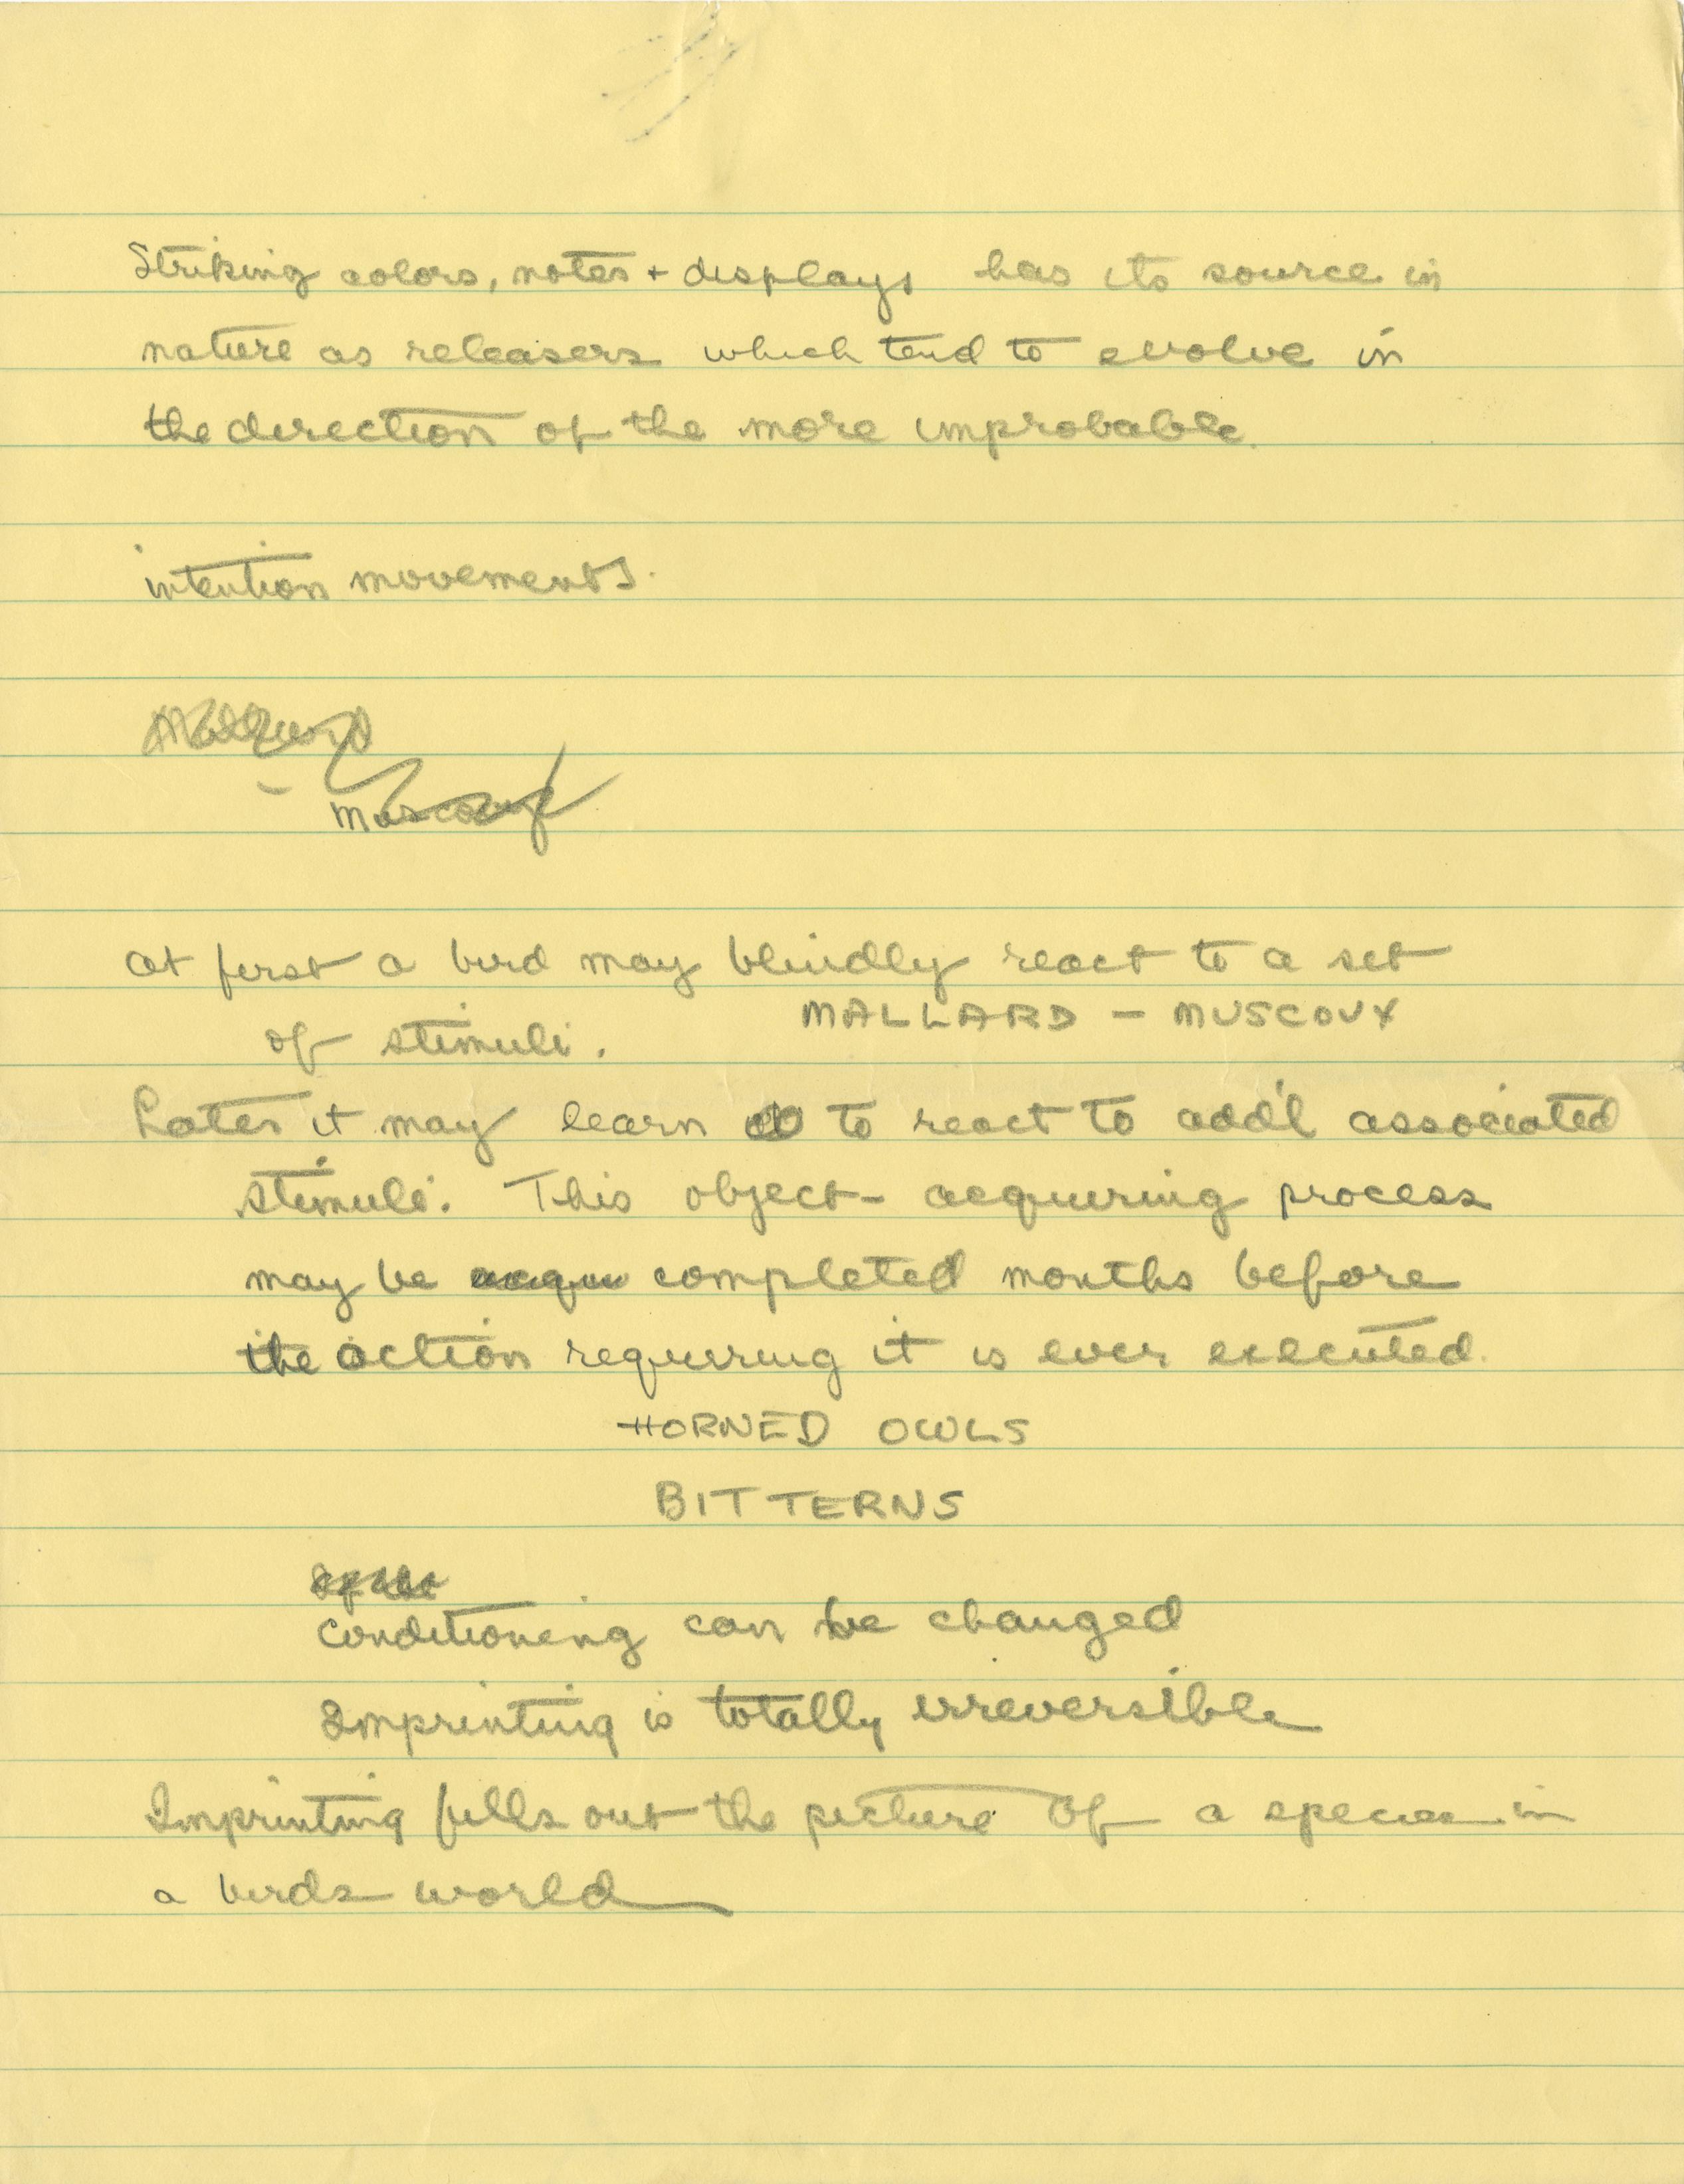 Striking colors, notes + displays has its source in
nature as releasers which tend to evolve in
the direction of the more improbable.
intention movements.
Muscovy
at first a bird may blindly react to a set
MALLARD - MUSCOVY
of stimuli.
Later it may learn to react to add'l associated
stimuli. This object-acquiring process
may be acqu completed months before
the action requiring it is ever executed.
HORNED OWLS
BITTERNS
Conditioning can be changed
Imprinting is totally irreversible
Imprinting fills out the picture of a species in
a birds world